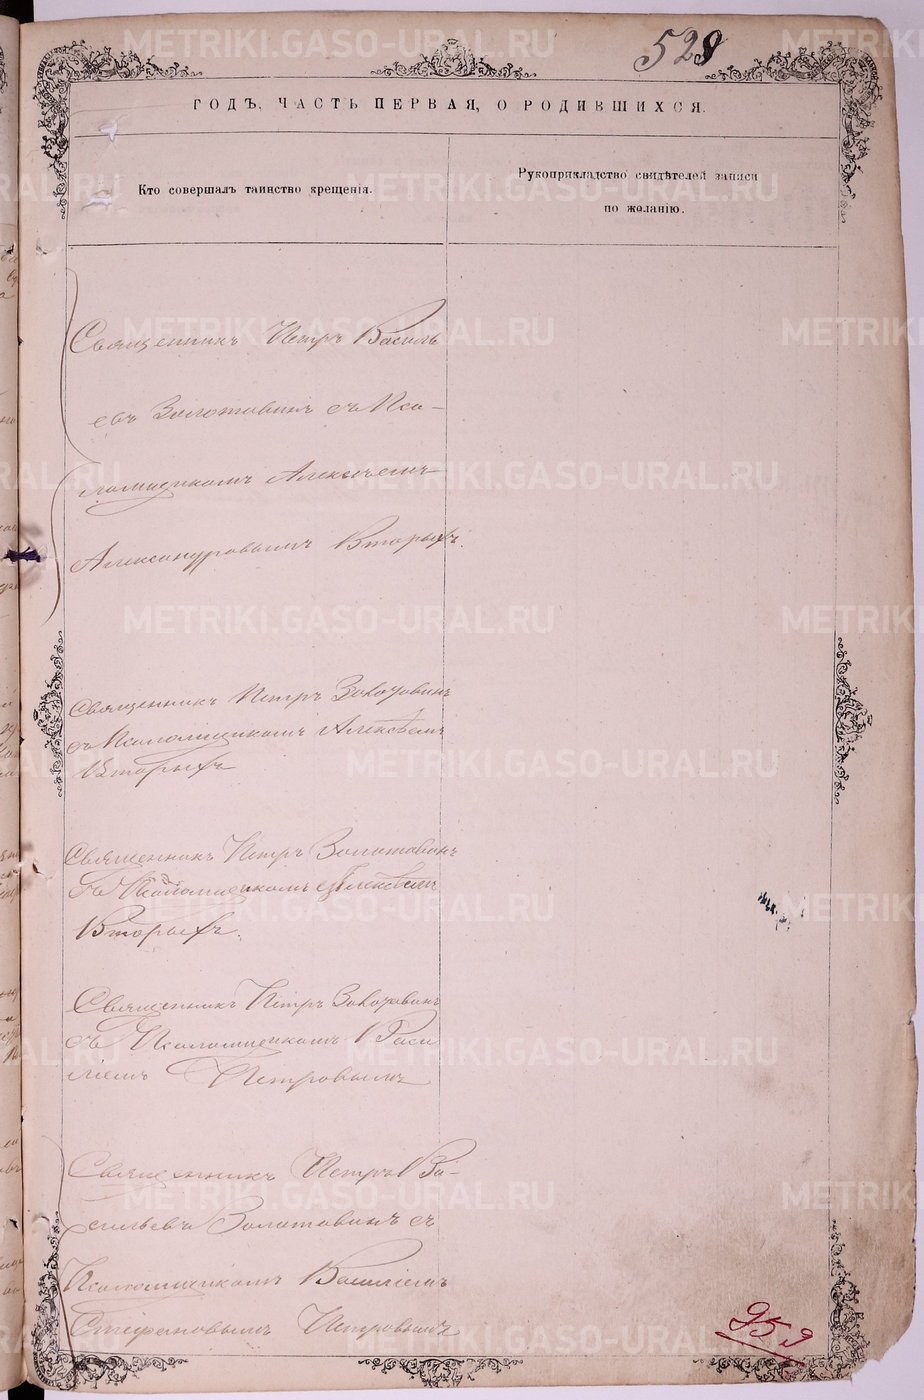 528
ГОДЪ, ЧАСТЬ ПЕРВАЯ, О РОДИВШИХСЯ.
Кто совершалъ таинство крещенія.
Рукоприкладство свидѣтелей записи
по желанію.
Священникъ Петръ Василь
евъ Золотавинъ съ Пса-
ломщикомъ Алексѣемъ
Александровымъ Вторыхъ.
Священникъ Петръ Золотавинъ
съ Псаломщикомъ Алексѣемъ
Вторыхъ
Священникъ Петръ Золотавинъ
съ Псаломщикомъ Алексѣемъ
Вторыхъ.
Священникъ Петръ Золотавинъ
съ Псаломщикомъ Васи
ліемъ Петровымъ
Священникъ Петръ Ва-
сильевъ Золотавинъ съ
Псаломщикомъ Василіемъ
Стефановымъ Петровымъ
METRIKI.GASO-URAL.RU